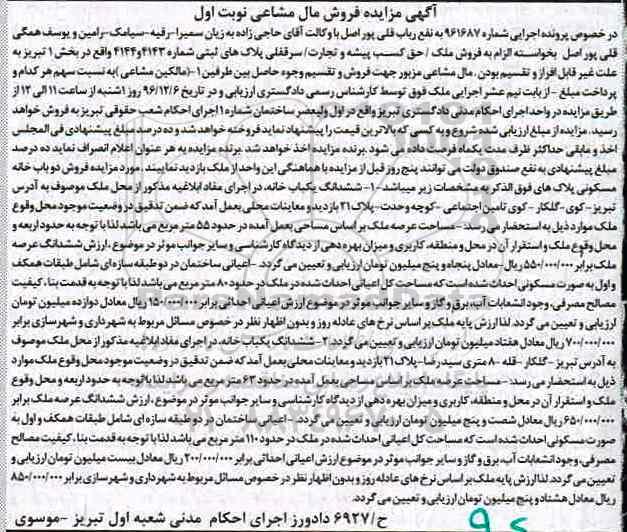 آگهی مزایده فروش مال مشاعی نوبت اول
در خصوص پرونده اجرایی شماره ۹۶۱۶۸۷ به نفع رباب قلی پور اصل با وکالت آقای حاجی زاده به زیان سمیرا-رقیه-سیامک-رامین و یوسف همگی
قلی پور اصل بخواسته الزام به فروش ملک / حق کسب پیشه و تجارت/ سرقفلی پلاک های ثبتی شماره ۴۱۴۳و۴۱۴۴ واقع در بخش ۱ تبریز به
علت غیر قابل افراز و تقسیم بودن، مال مشاعی مزبور جهت فروش و تقسیم وجوه حاصل بین طرفین ۱-(مالکین مشاعی )به نسبت سهم هر کدام و
پرداخت مبلغ - از بابت نیم عشر اجرایی ملک فوق توسط کارشناس رسمی دادگستری ارزیابی و در تاریخ ۹۶/۱۲/۶ روز ۱شنبه از ساعت ۱۱ الی ۱۲ از
طریق مزایده در واحد اجرای احکام مدنی دادگستری تبریز واقع در اول ولیعصر ساختمان شماره ۱ اجرای احکام شعب حقوقی تبریز به فروش خواهد
رسید. مزایده از مبلغ ارزیابی شده شروع و به کسی که بالاترین قیمت را پیشنهاد نماید فروخته خواهد شد و ده درصد مبلغ پیشنهادی فی المجلس
اخذ و مابقی حداکثر ظرف مدت یکماه فرصت داده می شود .برنده مزایده اخذ خواهد شد .برنده مزایده به هر عنوان اعلام انصراف نماید ده درصد
مبلغ پیشنهادی به نفع صندوق دولت می توانند پنج روز قبل از مزایده با هماهنگی این واحد از ملک بازدید نمایند . مورد مزایده فروش دو باب خانه
مسکونی پلاک های فوق الذکر به مشخصات زیر میباشد-۱- ششدانگ یکباب خانه، در اجرای مفاد ابلاغیه مذکور از محل ملک موصوف به آدرس
تبریز-کوی-گلکار -کوی تامین اجتماعی -کوچه وحدت-پلاک۲۱ بازدید و معاینات محلی بعمل آمد که ضمن تدقیق در وضعیت موجود محل وقوع
ملک موارد ذیل به استحضار می رسد:- مساحت عرصه ملک بر اساس مساحی بعمل آمده در حدود ۵۵ متر مربع می باشد لذا با توجه به حدود اربعه و
محل وقوع ملک و استقرار آن در محل و منطقه، کاربری و میزان بهره دهی از دیدگاه کارشناسی و سایر جوانب موثر در موضوع ،ارزش ششدانگ عرصه
ملک برابر ۵۵۰/۰۰۰/۰۰۰ریال-معادل پنجاه و پنج میلیون تومان ارزیابی و تعیین می گردد. -اعیانی ساختمان در دو طبقه سازه ای شامل طبقات همکف
و اول به صورت مسکونی احداث شده است که مساحت کل اعیانی احداث شده در ملک در حدود ۸۰ متر مربع می باشد لذا با توجه به قدمت بنا، کیفیت
مصالح مصرفی، وجود انشعابات آب، برق و گاز و سایر جوانب موثر در موضوع ارزش اعیانی احداثی برابر ۱۵۰/۰۰۰/۰۰۰ ریال معادل دوازده میلیون تومان
ارزیابی و تعیین می گردد. لذا ارزش پایه ملک بر اساس نرخ های عادله روز و بدون اظهار نظر در خصوص مسائل مربوط به شهرداری و شهرسازی برابر
۷۰۰/۰۰۰/۰۰۰ ریال معادل هفتاد میلیون تومان ارزیابی و تعیین می گردد.۲-ششدانگ یکباب خانه، در اجرای مفاد ابلاغیه مذکور از محل ملک موصوف
به آدرس تبریز - گلکار - قله -۸ متری سید رضا- پلاک ۲۱ بازدید و معاینات محلی بعمل آمد که ضمن تدقیق در وضعیت موجود محل وقوع ملک موارد
ذیل به استحضار می رسد:- مساحت عرصه ملک بر اساس مساحی بعمل آمده در حدود ۶۳ متر مربع می باشد لذا با توجه به حدود اربعه و محل وقوع
ملک و استقرار آن در محل و منطقه، کاربری و میزان بهره دهی از دیدگاه کارشناسی و سایر جوانب موثر در موضوع ، ارزش ششدانگ عرصه ملک برابر
۶۵۰/۰۰۰/۰۰۰ ریال معادل شصت و پنج میلیون تومان ارزیابی و تعیین می گردد. -اعیانی ساختمان در دو طبقه سازه ای شامل طبقات همکف و اول به
صورت مسکونی احداث شده است که مساحت کل اعیانی احداث شده در ملک در حدود ۱۱۰ متر مربع می باشد لذا با توجه به قدمت بنا، کیفیت مصالح
مصرفی، وجود انشعابات آب، برق و گاز و سایر جوانب موثر در موضوع ارزش اعیانی احداثی برابر ۲۰۰/۰۰۰/۰۰۰ ریال معادل بیست میلیون تومان ارزیابی و
تعیین می گردد. لذا ارزش پایه ملک بر اساس نرخ های عادله روز و بدون اظهار نظر در خصوص مسائل مربوط به شهرداری و شهرسازی برابر ۸۵۰/۰۰۰/۰۰۰
ریال معادل هشتاد و پنج میلیون تومان ارزیابی و تعیین می گردد.
ح/۶۹۲۷ دادورز اجرای احکام مدنی شعبه اول تبریز -موسوی